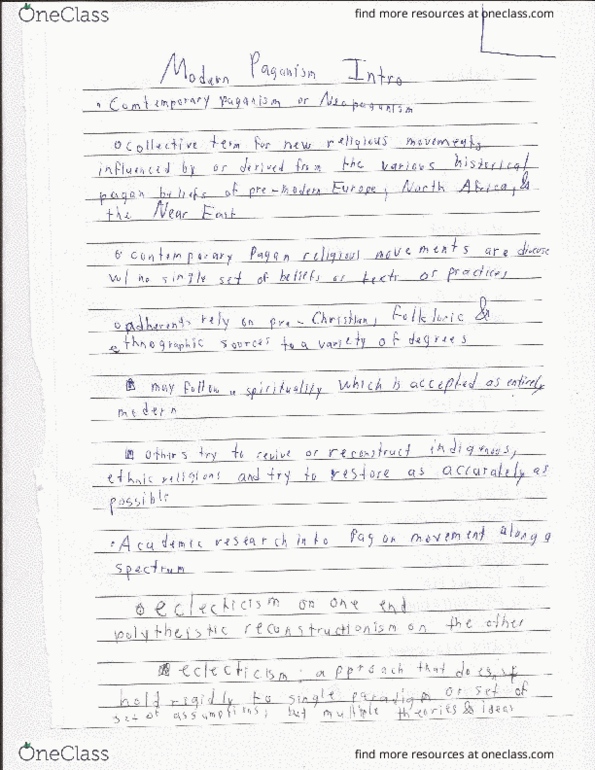 OneClass
find more resources at oneclass.com
Modern Paganism Intro
• Contemporary Paganism or Neopaganism
o collective term for new religious movements
influenced by or derived from the various historical
pagan beliefs of pre-modern Europe, North Africa, &
the Near East
o contemporary Pagan religious movements are diverse
w/ no single set of beliefs or texts or practices
o adherents rely on pre-Christian, folkloric &
ethnographic sources to a variety of degrees
may follow a spirituality which is accepted as entirely
modern
others try to revive or reconstruct indigenous,
ethnic religions and try to restore as accurately as
possible
• Academic research into Pagan movement along a
spectrum
o eclecticism on one end
polytheistic reconstructionism on the other
eclecticism: approach that doesn't
hold rigidly to single paradigm or set of
set of assumptions, but multiple theories & ideas
OneClass
find more resources at oneclass.com